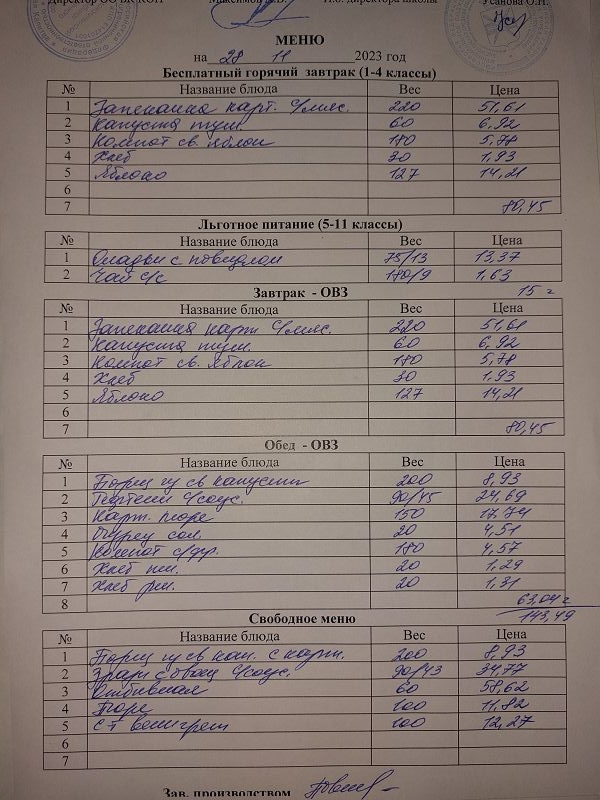 Директор ОО БК КОП Максимов И.о. директора школы Усанова О.Н.
МЕНЮ
на 28 11 2023 год
Бесплатный горячий завтрак (1-4 классы)
№ Название блюда Вес Цена
1 Запеканка карт. с/мяс. 220 51,61
2 Капуста туш. 60 6,92
3 Компот св. яблок 180 5,78
4 Хлеб 30 1,93
5 Яблоко 127 14,21
6
7 80,45
Льготное питание (5-11 классы)
№ Название блюда Вес Цена
1 Оладьи с повидлом 75/13 13,37
2 Чай с/с 180/9 1,63
Завтрак - ОВЗ 15 =
№ Название блюда Вес Цена
1 Запеканка карт с/мяс. 220 51,61
2 Капуста туш. 60 6,92
3 Компот св. яблок 180 5,78
4 Хлеб 30 1.93
5 Яблоко 127 14,21
6
7 80,45
Обед - ОВЗ
№ Название блюда Вес Цена
1 Борщ из св капусты 200 8,93
2 Тефтели с/соус. 90/45 24,69
3 Карт. пюре 150 17.74
4 Огурец сол. 20 4,51
5 Компот с/фр. 180 4,57
6 Хлеб пш. 20 1,29
7 Хлеб рж. 20 1,31
8 63,04 =
143,49
Свободное меню
№ Название блюда Вес Цена
1 Борщ из св кап. с карт. 200 8,93
2 Зразы с овощ с/соус. 90/43 34,77
3 Отбивная 60 58,62
4 Пюре 100 11,82
5 С-т винегрет 100 12,27
6
7
Зав. производством